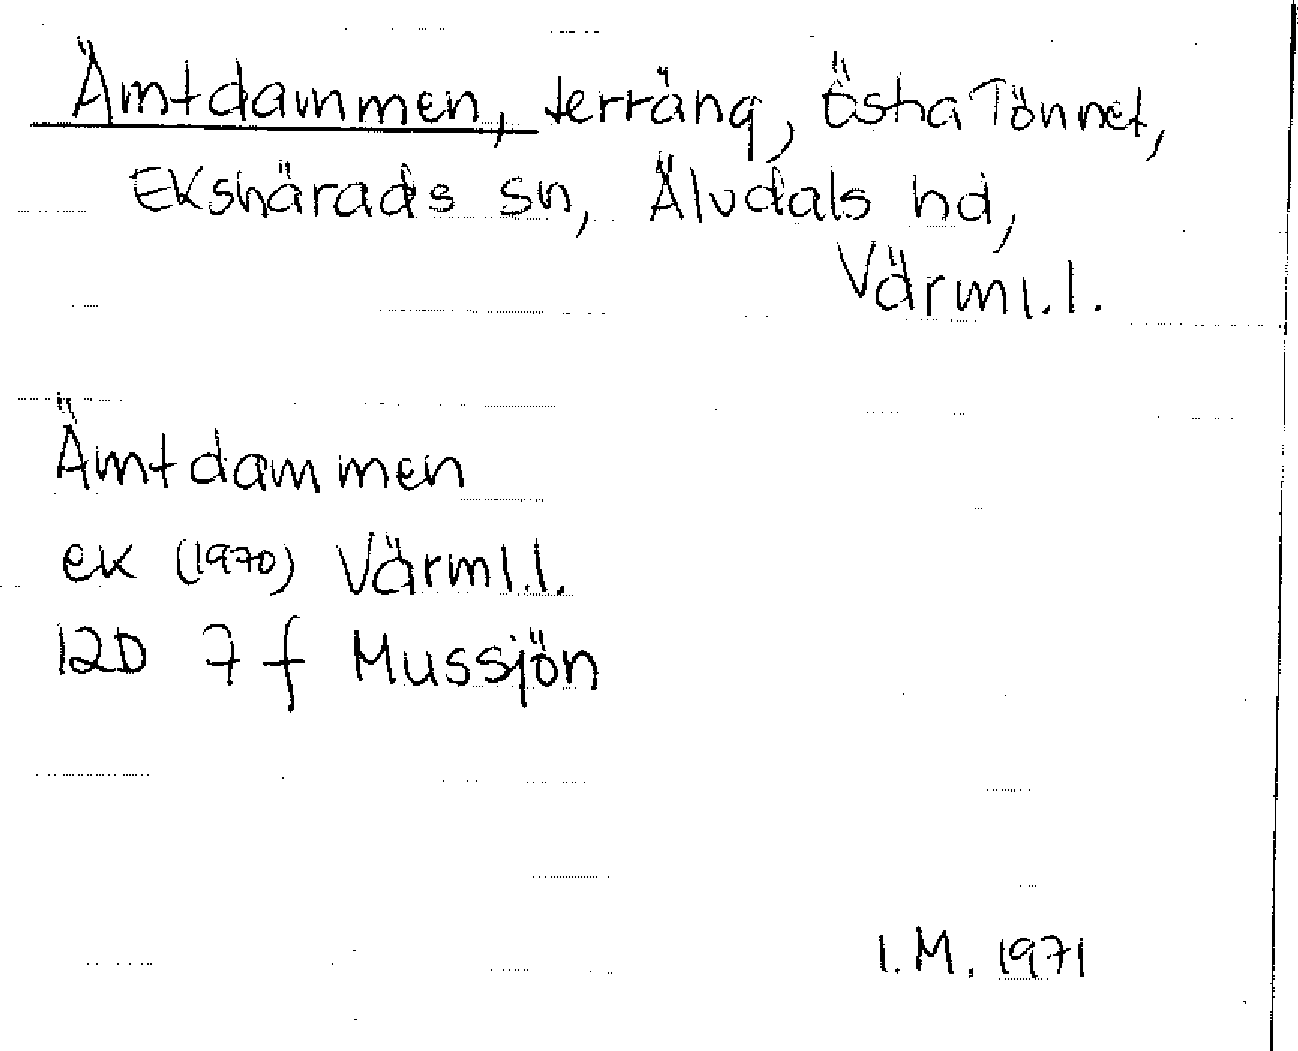 Ämtdammen, terräng, Östra Tönnet,
Ekshärads sn, Älvdals hd,
Värml.l.
Ämtdammen
ek (1970) Värml.l.
12D 7f Mussjön
I.M. 1971